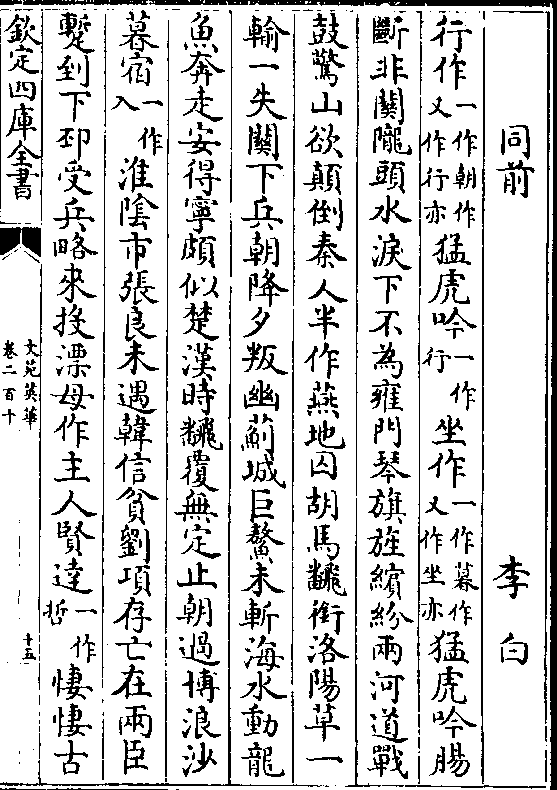 同前 李白
行作一作朝作又作行亦猛虎吟一作行坐作一作暮作又作坐亦猛虎吟腸
斷非關隴頭水淚下不為雍門琴旗旌繽紛兩河道戰
鼓驚山欲顛倒秦人半作燕地囚胡馬飜銜洛陽草一
輸一失關下兵朝降夕叛幽薊城巨鰲未斬海水動龍
魚奔走安得寧頗似楚漢時飜覆無定止朝過博浪沙
暮宿一作入淮陰市張良未遇韓信貧劉項存亡在兩臣
蹔到下邳受兵略來投漂母作主人賢達一作哲悽悽古
欽定四庫全書
文苑英華
卷二百十
十五